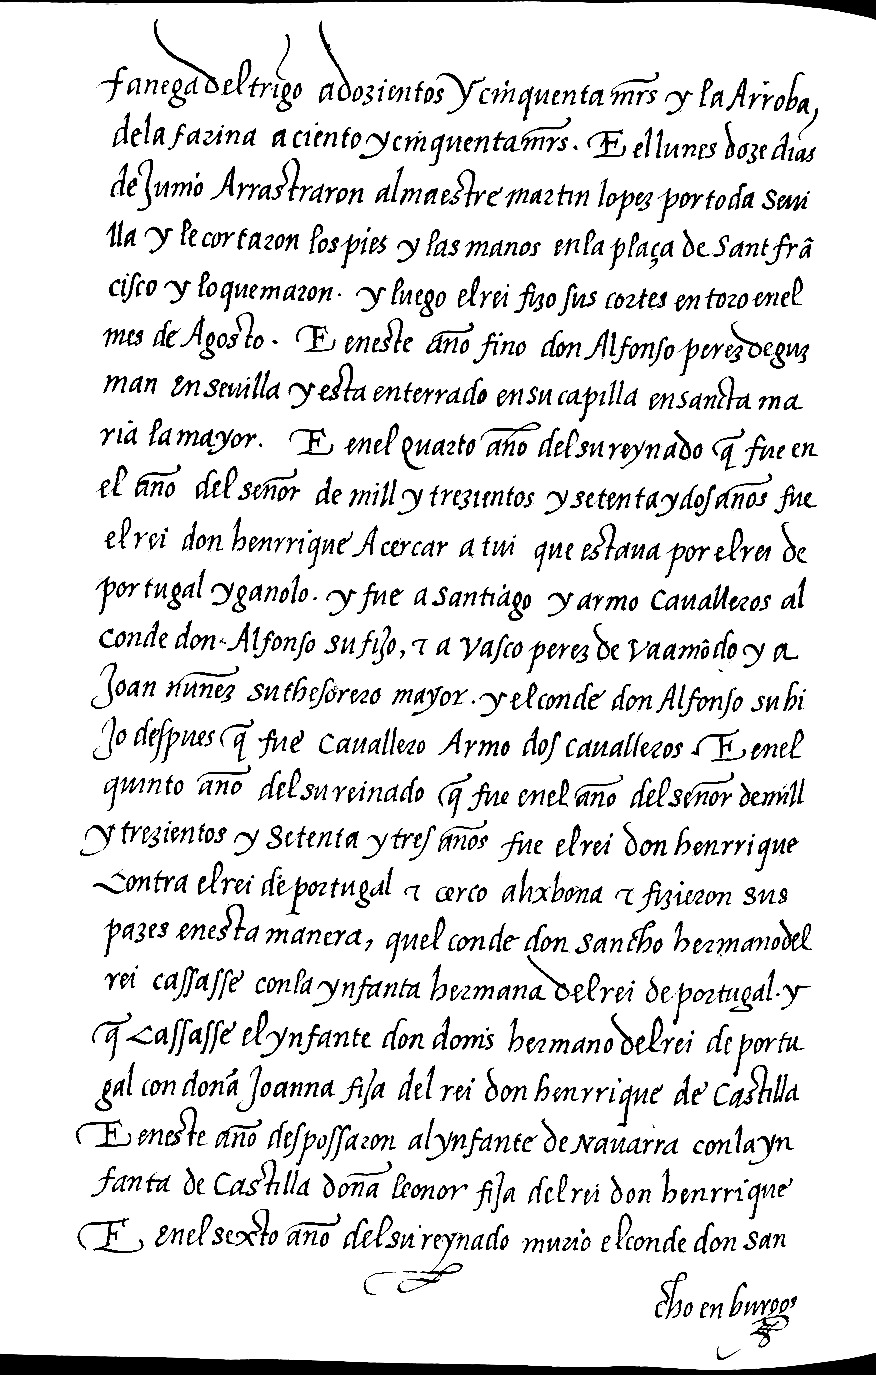 fanega del trigo a dozientos y cinquenta mr̃s y la Arroba,
dela farina a ciento y cinquenta mr̃s. E el lunes doze dias
de Junio Arrastraron al maestre martin lopez por toda Sevi
lla y le cortaron los pies y las manos en la plaça de Sant frã
cisco y lo quemaron. y luego el rei fizo sus cortes en toro en el
mes de Agosto. E en este año fino don Alfonso perez de guz
man en sevilla y esta enterrado en su capilla en sancta ma
ria la mayor. E en el quarto año del su reynado q̃ fue en
el año del señor de mill y trezientos y setenta y dos años fue
el rei don henrrique A cercar a tui que estaua por el rei de
portugal y ganolo. y fue a santiago y armo caualleros al
conde don Alfonso su fijo, τ a vasco perez de vaamõdo y a
Joan nuñez su thesorero mayor. y el conde don Alfonso su hi
Jo despues q̃ fue cauallero Armo dos caualleros. E en el
quinto año del su reinado q̃ fue en el año del señor de mill
y trezientos y setenta y tres años fue el rei don henrrique
contra el rei de portugal τ cerco a lixbona τ fizieron sus
pazes en esta manera, quel conde don sancho hermano del
rei cassasse con la ynfanta hermana del rei de portugal. y
q̃ cassasse el ynfante don donis hermano del rei de portu
gal con doña Joanna fija del rei don henrrique de Castilla
E en este año despossaron al ynfante de Nauarra con la yn
fanta de Castilla doña leonor fija del rei don henrrique
E en el sexto año del su reynado murio el conde don san
cho en burgos